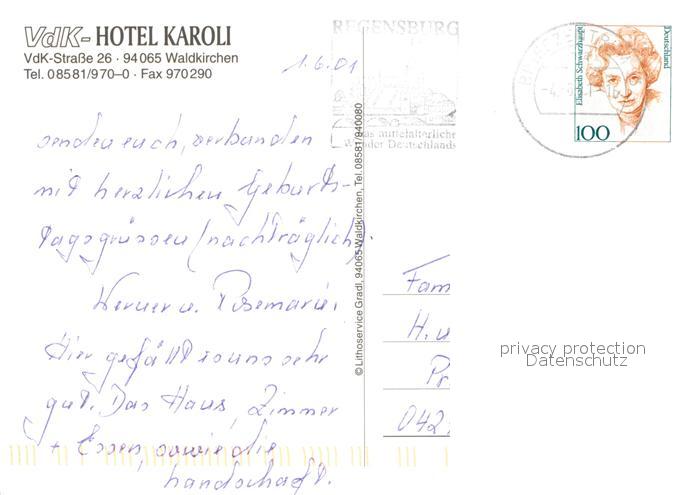 VdK-HOTEL KAROLI
VdK-Straße 26 · 94065 Waldkirchen
Tel. 08581/970-0 · Fax 970290
1.6.01
REGENSBURG
das mittelalterliche
Wunder Deutschlands
Elisabeth Schwarzhaupt
Deutschland
100
senden euch, verbunden
mit herzlichen Geburts-
tagsgrüssen (nachträglich).
Werner u. Rosemarie.
Hier gefällt es uns sehr
gut. Das Haus, Zimmer
+ Essen, sowie die
Landschaft.
© Lithoservice Gradl, 94065 Waldkirchen, Tel. 08581/940080
Fam
H. u
Pr
042
privacy protection
Datenschutz